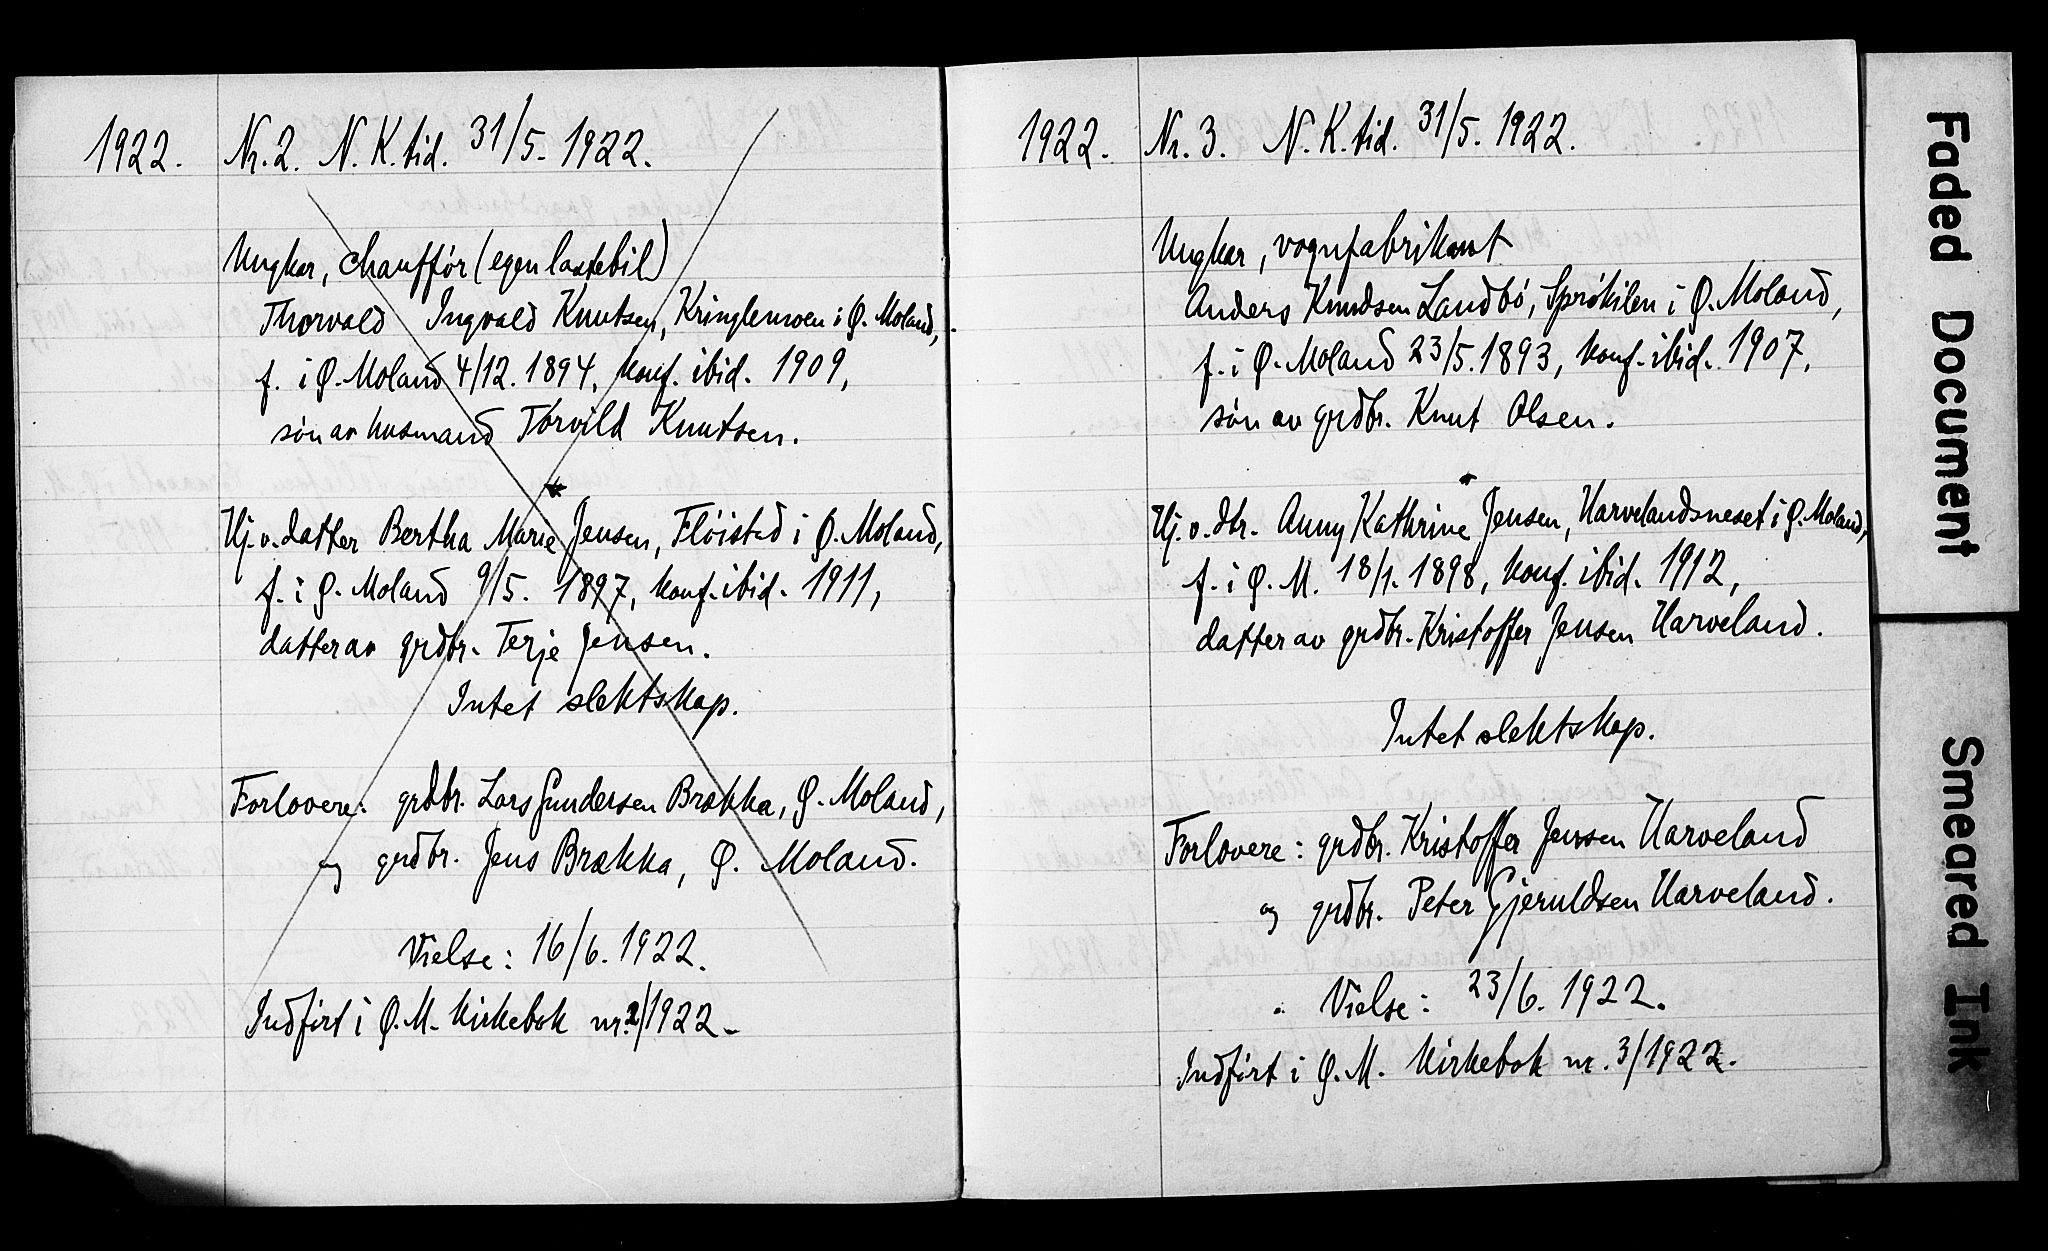 1922. Nr. 2. N. K. tid. 31/5. 1922.
Ungkar, chauffør (egen lastebil)
Thorvald Ingvald Knutsen, Kringlemoen i Ø. Moland,
f. i Ø. Moland 4/12. 1894, konf. ibid. 1909,
søn av husmand Torvild Knutsen.
Hj. v. datter Bertha Marie Jensen, Fløistad i Ø. Moland,
f. i Ø. Moland 9/5. 1897, konf. ibid. 1911,
datter av grdbr. Terje Jensen.
Intet slektskap.
Forlovere: grdbr. Lars Gundersen Brækka, Ø. Moland,
og grdbr. Jens Brækka, Ø. Moland.
Vielse: 16/6. 1922.
Indført i Ø. M. kirkebok nr. 2/1922.
1922. Nr. 3. N. K. tid. 31/5. 1922.
Ungkar, vognfabrikant
Anders Knudsen Landbø, Sprøkilen i Ø. Moland,
f. i Ø. Moland 23/5. 1893, konf. ibid. 1907,
søn av grdbr. Knut Olsen.
Hj. v. dtr. Anny Kathrine Jensen, Harvelandsneset i Ø. Moland,
f. i Ø. M. 18/1. 1898, konf. ibid. 1912,
datter av grdbr. Kristoffer Jensen Harveland.
Intet slektskap.
Forlovere: grdbr. Kristoffer Jensen Harveland
og grdbr. Peter Gjeruldsen Harveland.
Vielse: 23/6. 1922.
Indført i Ø. M. kirkebok nr. 3/1922.
Faded Document
Smeared Ink